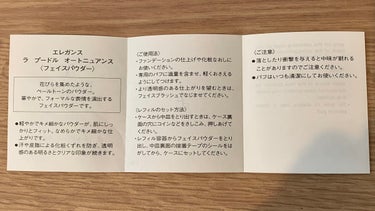 エレガンス
ラ プードル オートニュアンス
〈フェイスパウダー〉
花びらを集めたような、
ペールトーンのパウダー。
華やかで、フォーマルな表情を演出する
フェイスパウダーです。
●軽やかでキメ細かなパウダーが、肌にしっ
かりとフィット。なめらかでキメ細かな仕
上がりです。
●汗や皮脂による化粧くずれを防ぎ、透明
感のある明るさとクリアな印象が続きます。
〈ご使用法〉
・ファンデーションの仕上げや化粧なおしに
お使いください。
・専用のパフに適量を含ませ、軽くおさえる
ようにしてつけます。
・より透明感のある仕上がりを望むときは、
フェイスブラッシュでなじませてください。
〈レフィルのセット方法〉
・ケースから中皿をとり出すときは、ケース裏
面の穴にコインなどをさしこみ、押しあげて
ください。
・レフィル容器からフェイスパウダーをとり
出し、中皿裏面の接着テープのシールをは
がしてから、ケースにセットしてください。
〈ご注意〉
●落としたり衝撃を与えると中味が割れる
ことがありますのでご注意ください。
●パフはいつも清潔にしてお使いください。